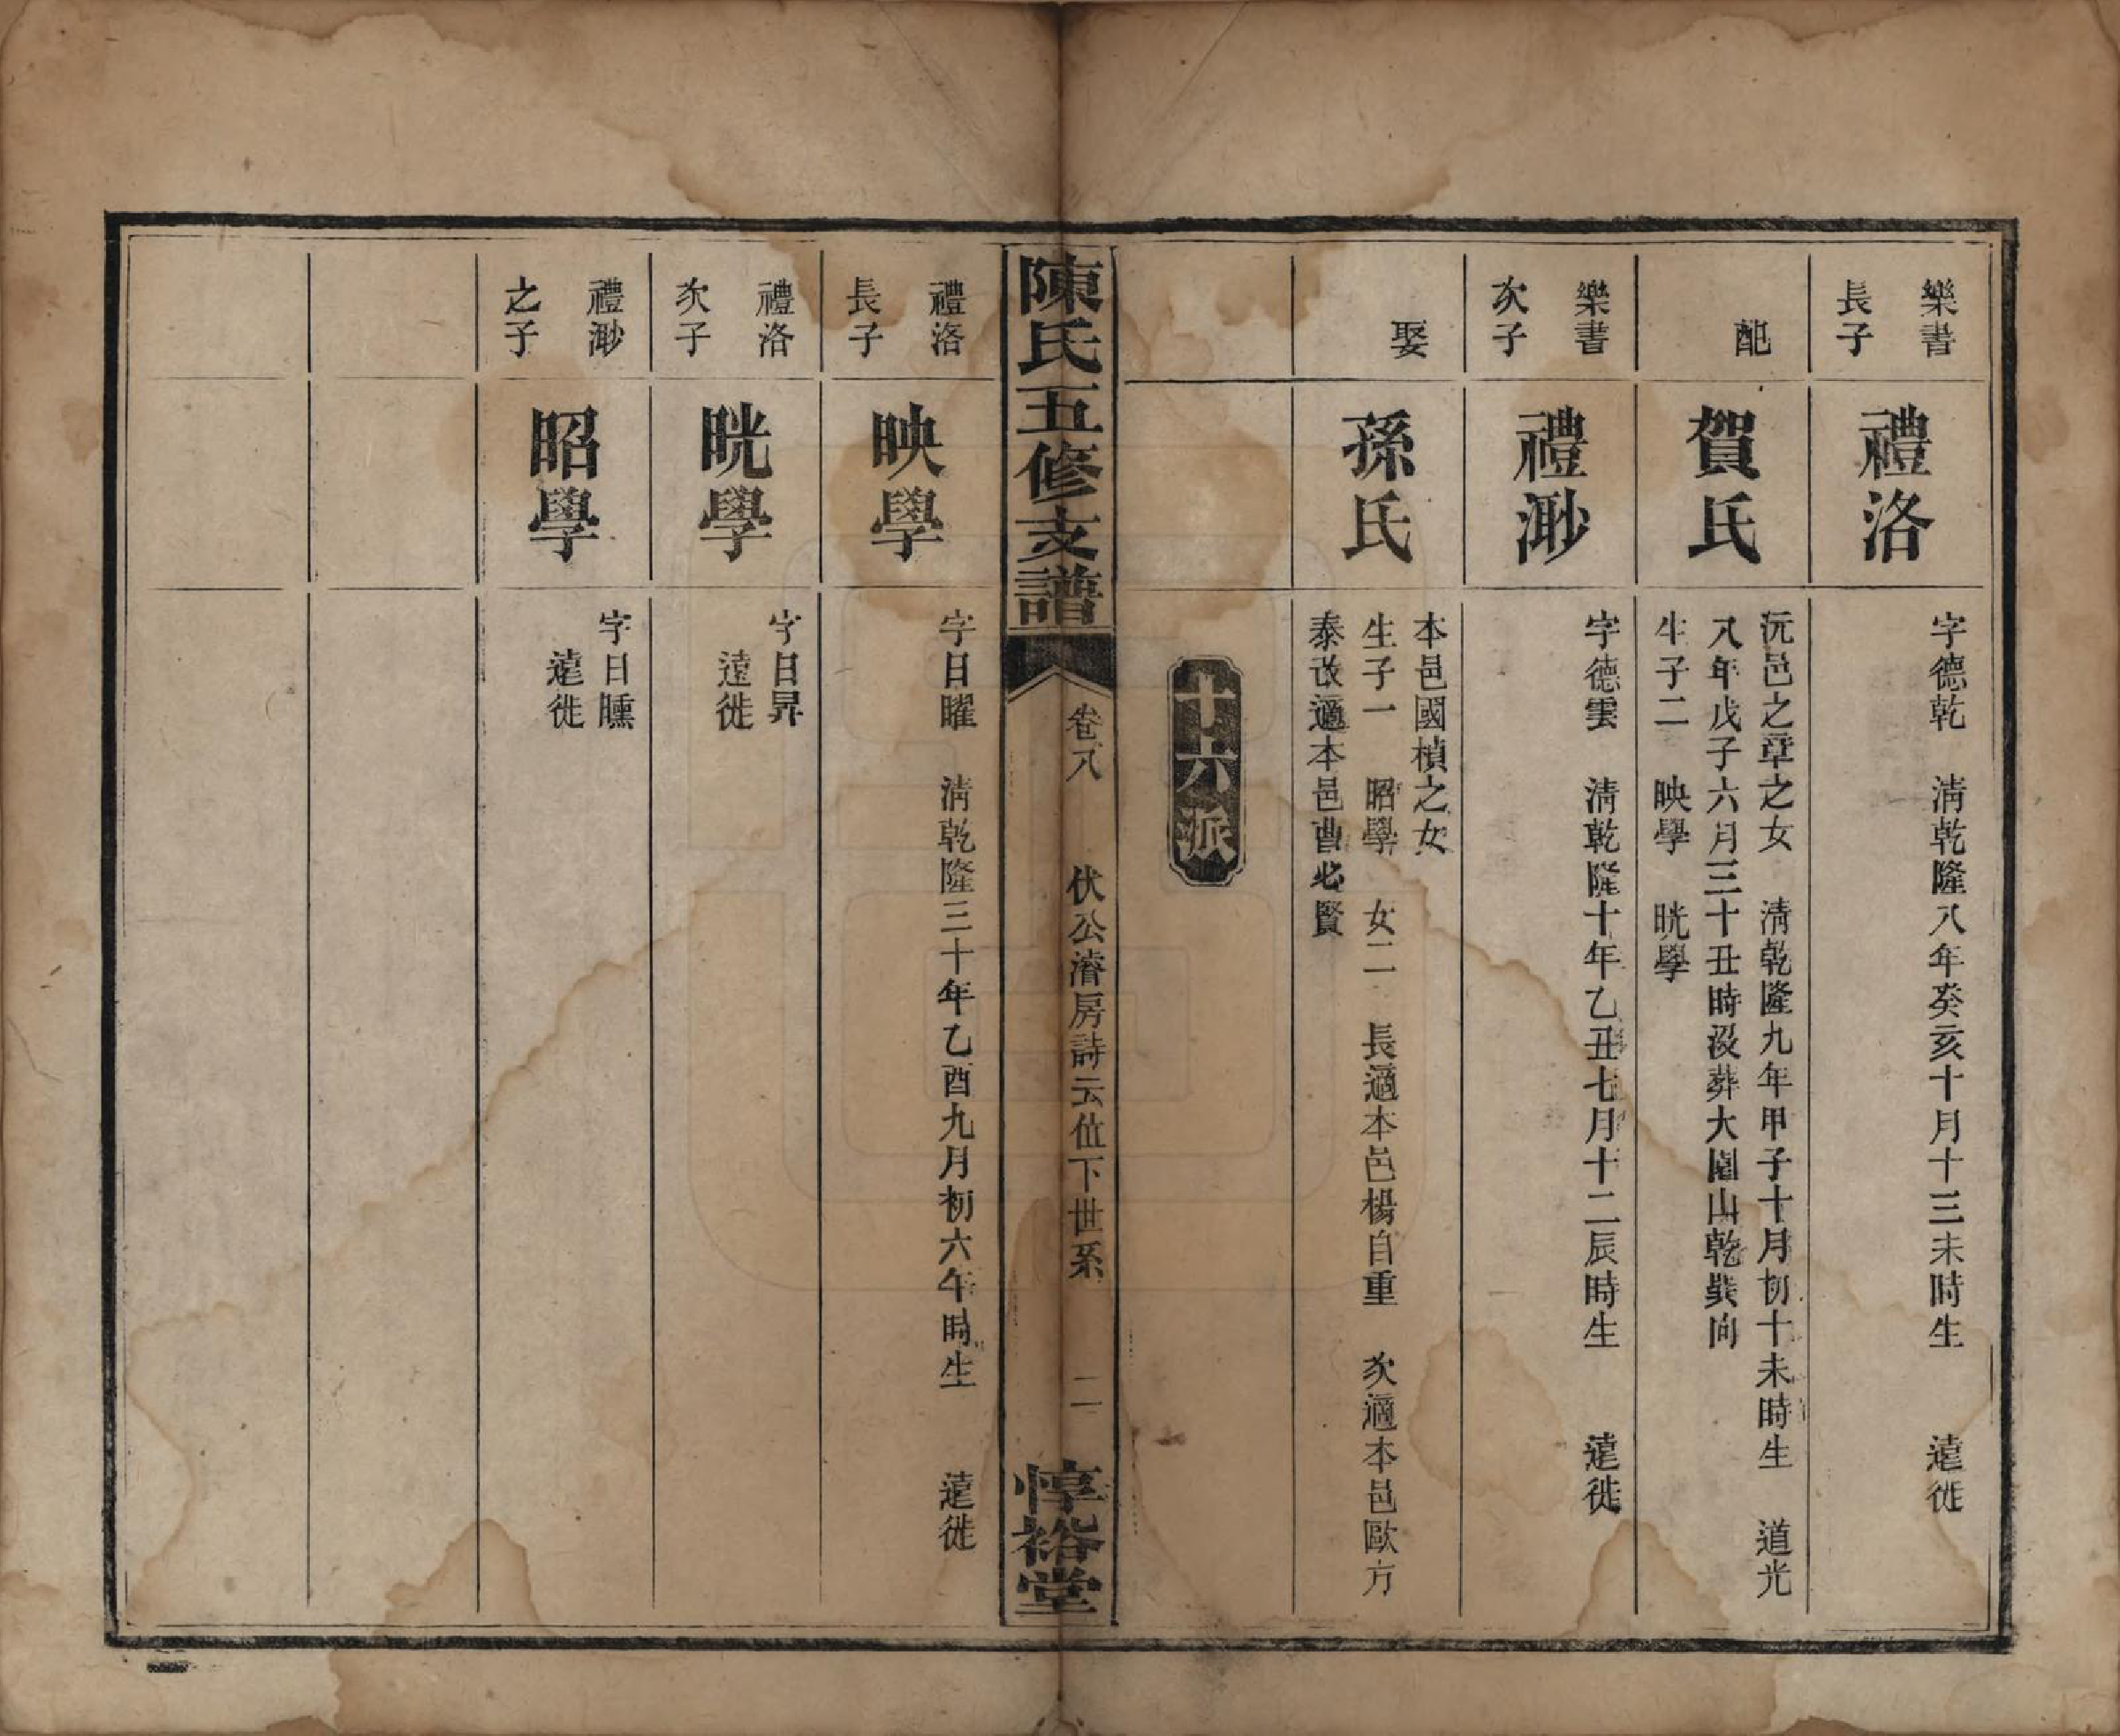 樂書
長子
禮洛
字德乾　清乾隆八年癸亥十月十三未時生　遠徙
配
賀氏
沅邑之章之女　清乾隆九年甲子十月初十未時生　道光
八年戊子六月三十丑時沒葬大園山乾巽向
生子二　映學　晄學
樂書
次子
禮渺
字德雲　清乾隆十年乙丑七月十二辰時生　遠徙
娶
孫氏
本邑國楨之女
生子一　昭學　女二　長適本邑楊自重　次適本邑歐方
泰改適本邑曹必賢
十六派
陳氏五修支譜
卷八　伏公濬房詩云位下世系　二
惇裕堂
禮洛
長子
映學
字日曜　清乾隆三十年乙酉九月初六午時生　遠徙
禮洛
次子
晄學
字日昇
遠徙
禮渺
之子
昭學
字日曛
遠徙